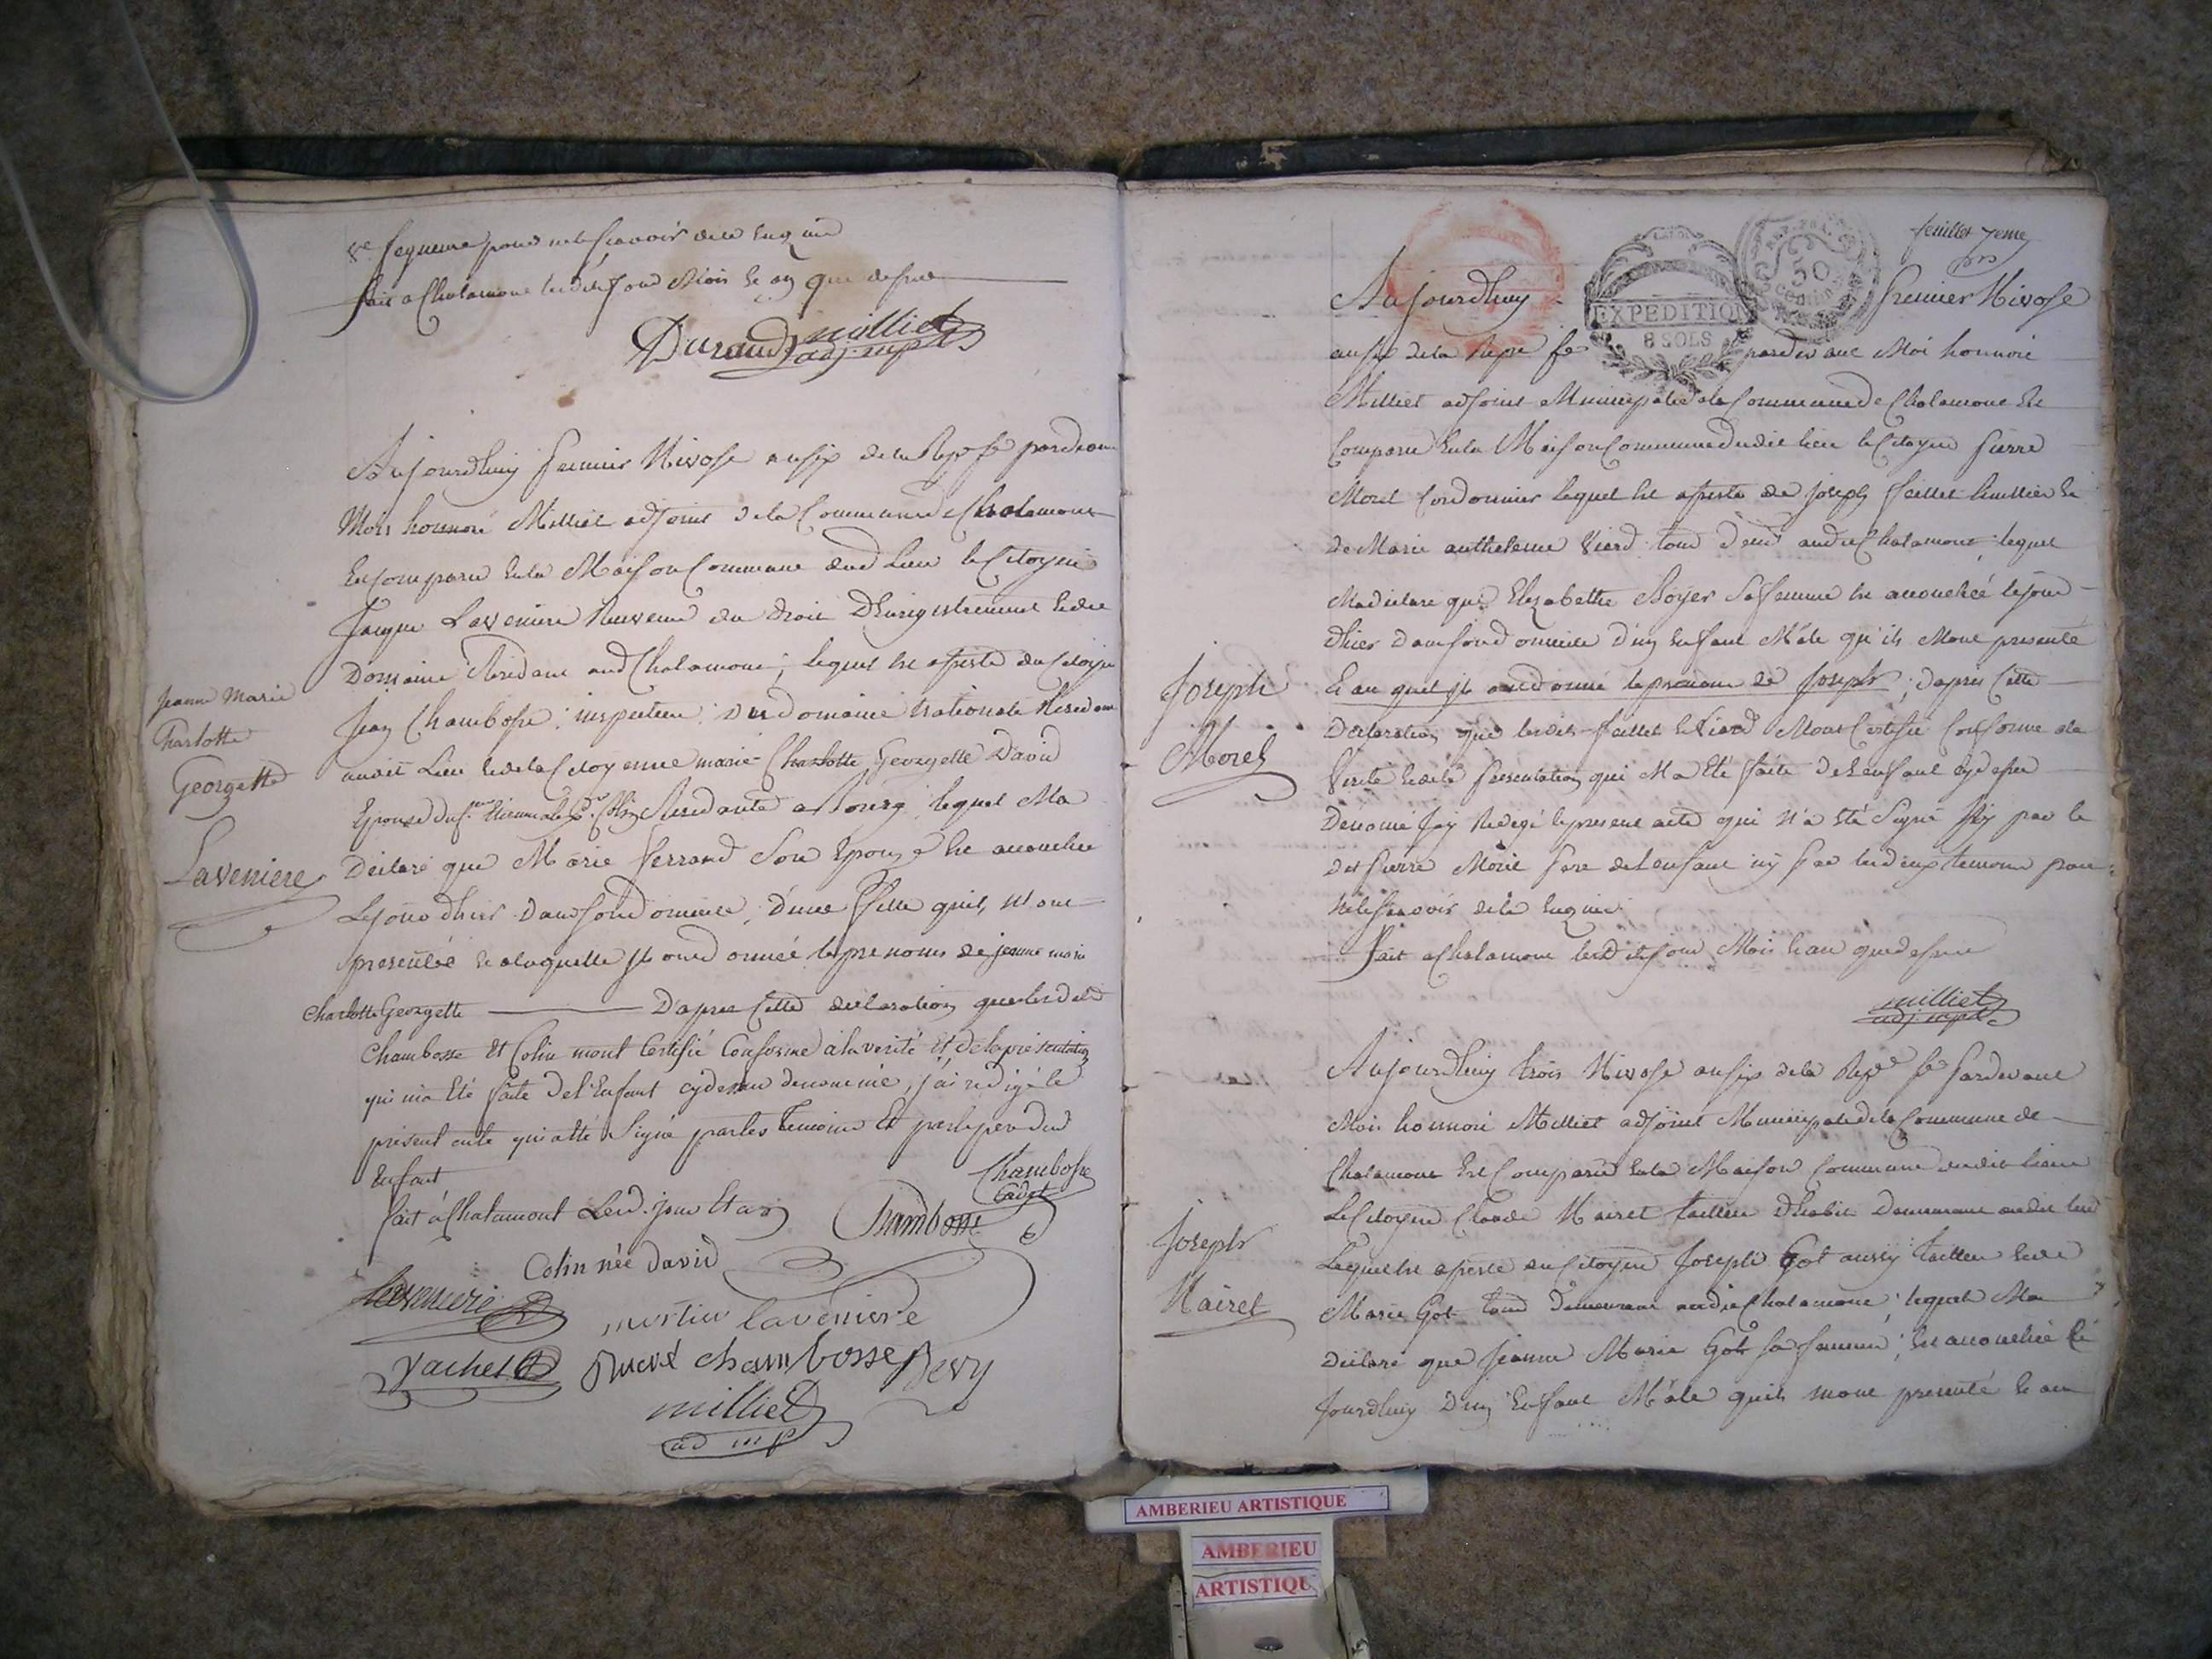 pour ne le scavoir de le enquis
fait a Chalamont lesdits jour Mois et an que dessus
Durand milliet
adj. mpl
Aujourdhuy premier Nivose an six de la Rep fse pardevant
Moi honnoré Milliet adjoint de la Commune de Chalamont
Est comparu en la Maison Commune dud Lieu le Citoyen
Jacque Laveniere Receveur du droit D'Enregistrement et de
Domaine Residant aud Chalamont; lequel est assisté du Citoyen
Jean Chambosse inspecteur des domaine nationale Residant
audit Lieu et de la Citoyenne marie Charlotte Georgette David
Epouse du Colin Residante a Bourg lequel Ma
Déclaré que Marie ferrand Son Epouse est accouchée
Le jour dhier dans son domicile, d'une fille quils M'ont
presentée et a laquelle ils ont donné les prenoms de jeanne marie
Charlotte Georgette D'apres Cette déclaration que lesdits
Chambosse Et Colin mont Certifié Conforme a la verité Et de la présentation
qui ma Eté faite de l'Enfant cydessus denommé, j'ai redigé le
présent acte qui a été Signé par les temoins Et par le pere dud
Enfant
fait à Chalamont Led. jour Et an
Jeanne Marie
Charlotte
Georgette
Laveniere
Chambosse
Cadet
Chambosse
Colin née David
Laveniere
mertier laveniere
Vachet Ducré chambosse Devy
milliet
ad mp
feuillet 7eme
EXPEDITION
8 SOLS
50
Aujourdhuy premier Nivose
an six de la Repe fse pardevant Moi honnoré
Milliet adjoint Municipale de la Commune de Chalamont Est
Comparu en la Maison Commune dudit lieu le Citoyen pierre
Morel Cordonnier lequel est assisté de joseph faillet huillier et
De Marie anthelme Viard tous deux audit Chalamont; lequel
Ma déclaré que Elizabethe Boyer Sa femme est accouchée le jour
dhier dans son domicile d'un Enfant Mâle qu'ils Mont presenté
Et au quel ils ont donné le prenom de Joseph; dapres Cette
Declaration que lesdits faillet et Viard Mont Certifié Conforme a la
Verité et de la presentation qui Ma Eté faite de l'enfant cydessus
Denomé jay Redigé le present acte qui n'a été Signé ny par le
dit pierre Morel pere de l'enfant ny par lesdeux temoins pour
ne le scavoir de le enquis
fait a Chalamont lesdits jour Mois et an que dessus
milliet
adj. mpl
Joseph
Morel
Aujourdhuy trois Nivose an six de la Repe fse pardevant
Moi honnoré Milliet adjoint Municipale de la Commune de
Chalamont Est Comparu en la Maison Commune dudit lieu
Le Citoyen Claude Mairet tailleur d'habit Demeurant audit lieu
Lequel est assisté du Citoyen Joseph Got aussy tailleur et de
Marie Got tous demeurant audit Chalamont; lequel Ma
déclaré que jeanne Marie Got sa femme; est accouchée ce
jourdhuy d'un Enfant Mâle quils mont presenté et au
Joseph
Mairet
AMBERIEU ARTISTIQUE
AMBERIEU
ARTISTIQU